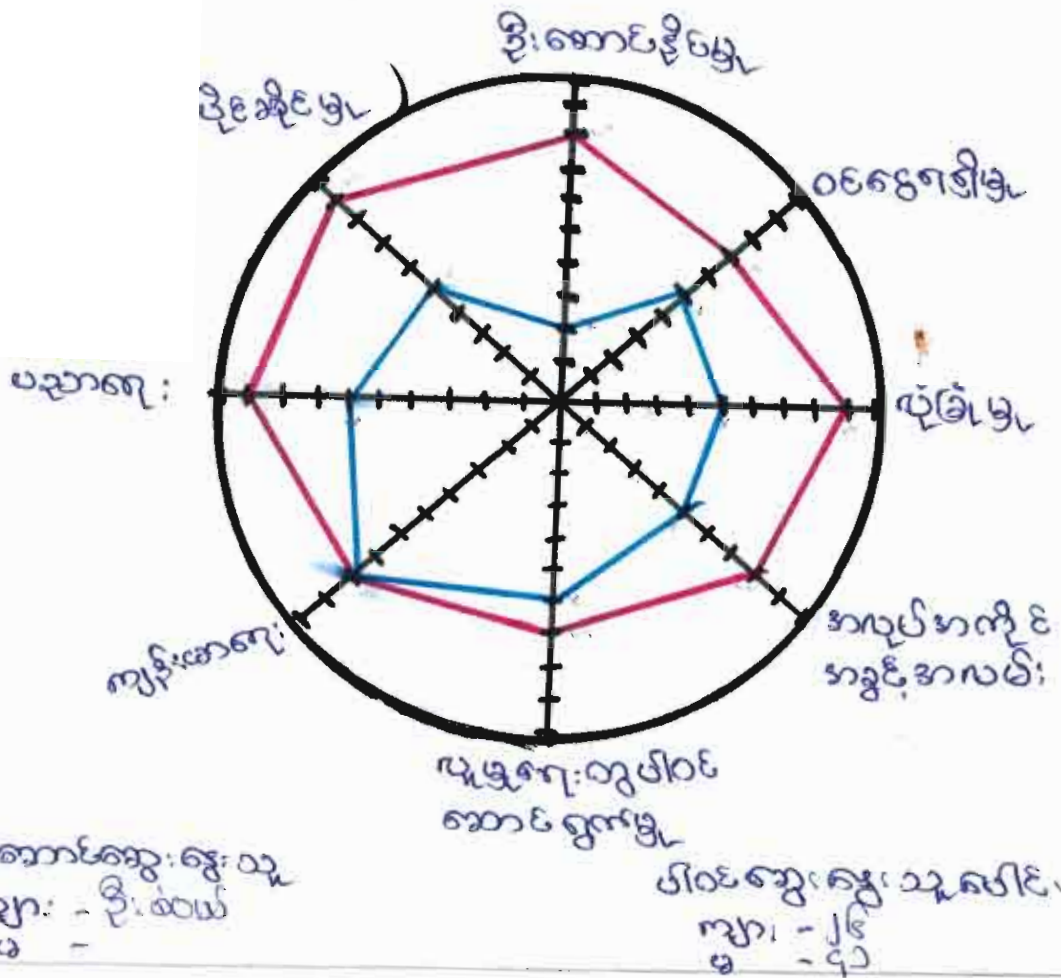 ဦးဆောင်နိုင်မှု
ပိုင်ဆိုင်မှု
ဝင်ငွေရရှိမှု
ပညာရေး
လုံခြုံမှု
ကျန်းမာရေး
အလုပ်အကိုင်
အခွင့်အလမ်း
လူမှုရေးတွင်ပါဝင်
ဆောင်ရွက်မှု
ဆောင်ဆွေးနွေးသူ
ကျား - ဦး
မ -
ပါဝင်ဆွေးနွေးသူပေါင်း
ကျား - ၂၆
မ -